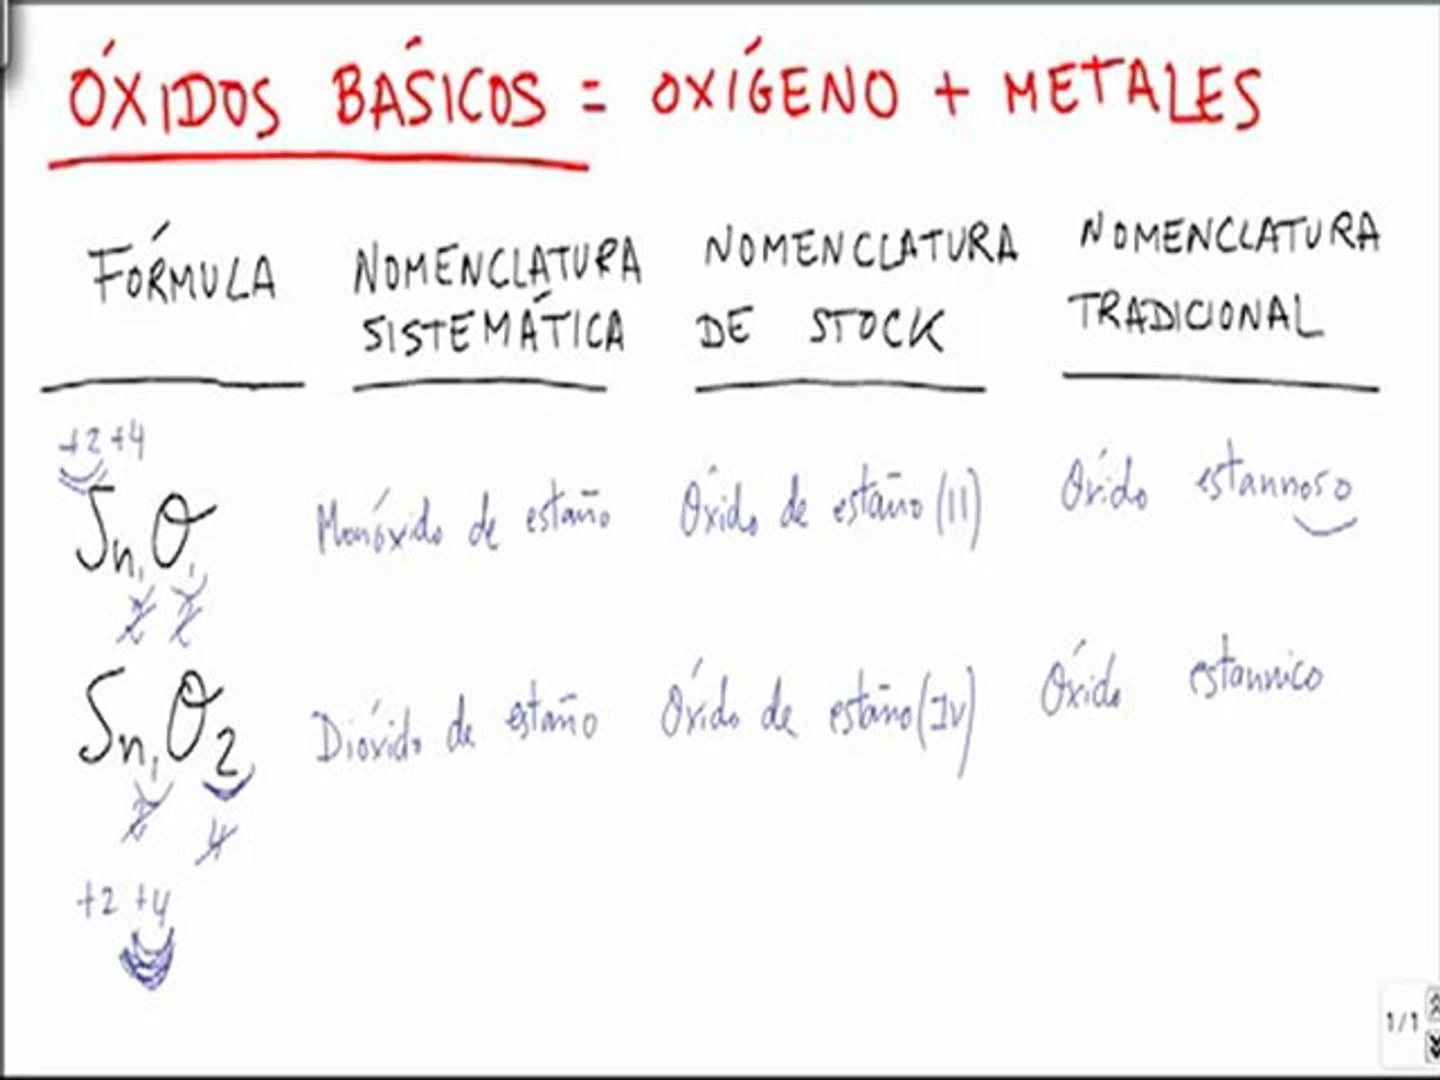 ÓXIDOS BÁSICOS = OXÍGENO + METALES
FÓRMULA NOMENCLATURA SISTEMÁTICA NOMENCLATURA DE STOCK NOMENCLATURA TRADICIONAL
+2 +4
Sn1O1 Monóxido de estaño Óxido de estaño (II) Óxido estannoso
2 2
Sn1O2 Dióxido de estaño Óxido de estaño (IV) Óxido estannico
2 4
+2 +4
1/1